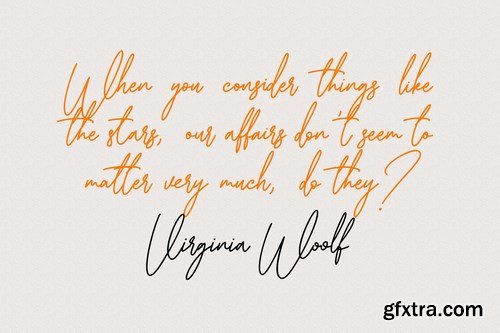 When you consider things like
the stars, our affairs don't seem to
matter very much, do they?
Virginia Woolf
gfxtra.com